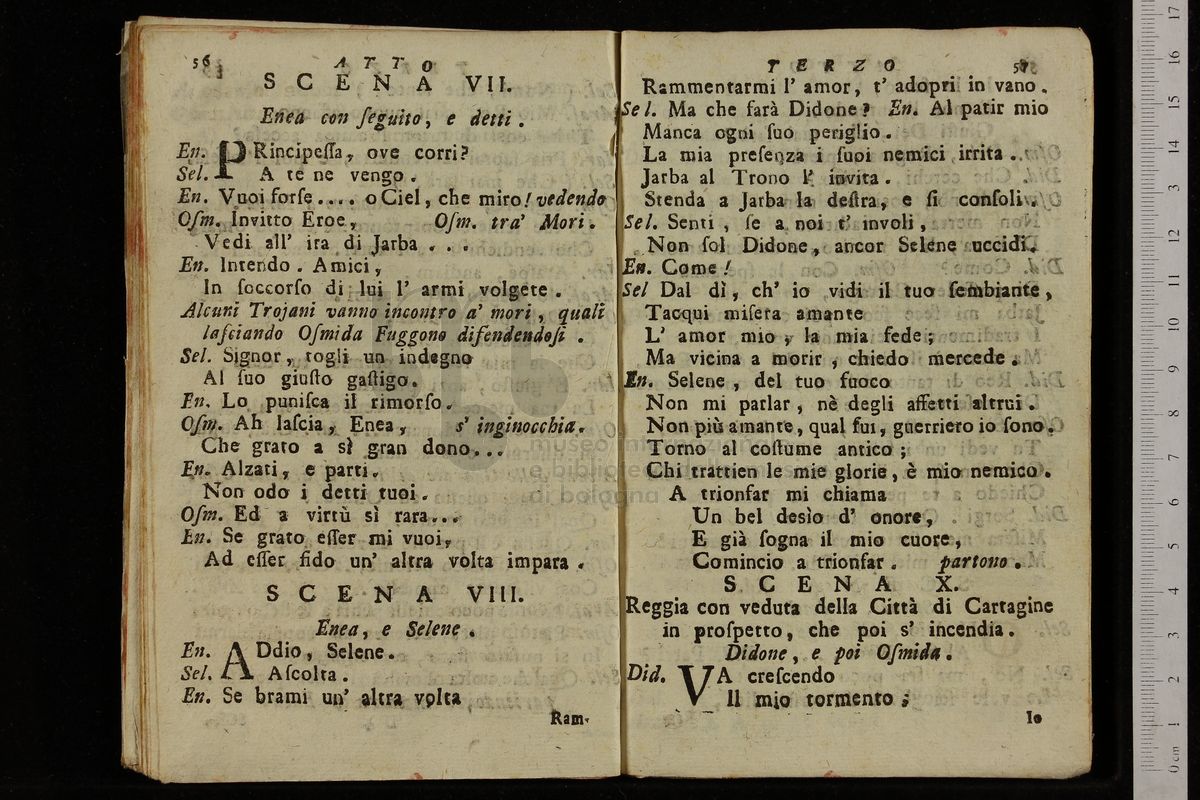 56 ATTO
SCENA VII.
Enea con ſeguito, e detti.
En. PRincipeſſa, ove corri?
Sel. A te ne vengo.
En. Vuoi forſe.... o Ciel, che miro! vedendo
Oſm. Invitto Eroe, Oſm. tra' Mori.
Vedi all' ira di Jarba...
En. Intendo. Amici,
In ſoccorſo di lui l' armi volgete.
Alcuni Trojani vanno incontro a' mori, quali
laſciando Oſmida Fuggono difendendoſi.
Sel. Signor, togli un indegno
Al ſuo giuſto gaſtigo.
En. Lo puniſca il rimorſo.
Oſm. Ah laſcia, Enea, s' inginocchia.
Che grato a sì gran dono...
En. Alzati, e parti.
Non odo i detti tuoi.
Oſm. Ed a virtù sì rara...
En. Se grato eſſer mi vuoi,
Ad eſſer fido un' altra volta impara.
SCENA VIII.
Enea, e Selene.
En. ADdio, Selene.
Sel. Aſcolta.
En. Se brami un' altra volta
Ram-
TERZO 57
Rammentarmi l' amor, t' adopri in vano.
Sel. Ma che farà Didone? En. Al patir mio
Manca ogni ſuo periglio.
La mia preſenza i ſuoi nemici irrita.
Jarba al Trono l' invita.
Stenda a Jarba la deſtra, e ſi conſoli.
Sel. Senti, ſe a noi t' involi,
Non ſol Didone, ancor Selene uccidi.
En. Come!
Sel Dal dì, ch' io vidi il tuo ſembiante,
Tacqui miſera amante
L' amor mio, la mia fede;
Ma vicina a morir, chiedo mercede.
En. Selene, del tuo fuoco
Non mi parlar, nè degli affetti altrui.
Non più amante, qual fui, guerriero io ſono.
Torno al coſtume antico;
Chi trattien le mie glorie, è mio nemico.
A trionfar mi chiama
Un bel desìo d' onore,
E già ſogna il mio cuore,
Comincio a trionfar. partono.
SCENA X.
Reggia con veduta della Città di Cartagine
in proſpetto, che poi s' incendia.
Didone, e poi Oſmida.
Did. VA creſcendo
Il mio tormento;
Io